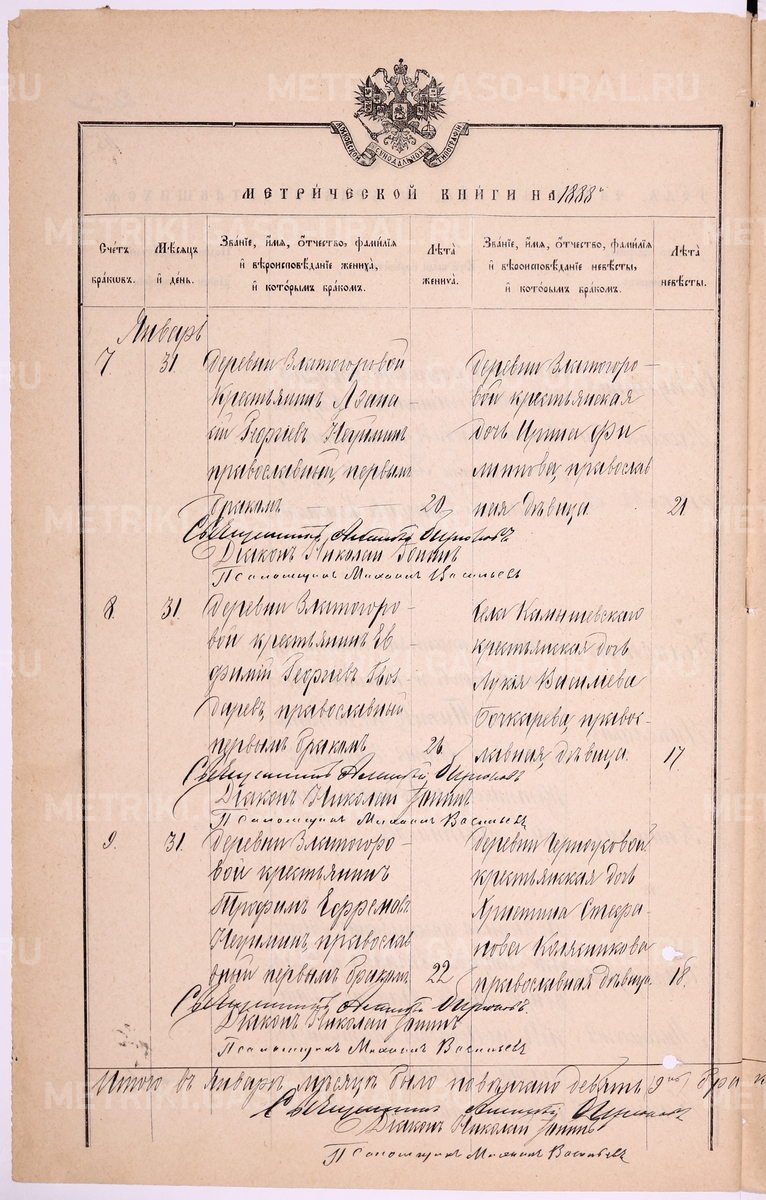 METRIKI.GASO-URAL.RU
МОСКОВСКОЙ СѴНОДАЛЬНОЙ ТИПОГРАФІИ
МЕТРИ́ЧЕСКОЙ КНИ́ГИ НА 1888 г
Счётъ бра́ковъ.
Мѣ́сяцъ и҆ де́нь.
Зва́нїе, и҆́мя, ѻ҆́тчество, фами́лїя и҆ вѣроисповѣ́данїе жениха̀, и҆ кото́рымъ бра́комъ.
Лѣ́та жениха̀.
Зва́нїе, и҆́мя, ѻ҆́тчество, фами́лїя и҆ вѣроисповѣ́данїе невѣ́сты, и҆ кото́рымъ бра́комъ.
Лѣ́та невѣ́сты.
Январь
7 31. Деревни Златогоровой
Крестьянинъ
Георгіевъ Неуйминъ
православный, первымъ
бракомъ 20
Деревни Златогоро-
вой крестьянская
дочь Ирина Фи
липпова, православ
ная дѣвица 21
Священникъ
Діаконъ Николай
Псаломщикъ Михаилъ Васильевъ
8. 31. Деревни Златогоро-
вой крестьянинъ Ев
фимій Георгіевъ Бон
даревъ, православный
первымъ бракомъ 26
Села Камышевскаго
крестьянская дочь
Лукія Василіева
Бочкарева, правос-
лавная, дѣвица. 17
Священникъ
Діаконъ Николай
Псаломщикъ Михаилъ Васильевъ
9. 31. Деревни Златогоро-
вой крестьянинъ
Трофимъ Ефремовъ
Неуйминъ, православ
ный первымъ бракомъ 22
Деревни Черноусовой
крестьянская дочь
Христина Стефа-
нова Калясникова
православная дѣвица. 18.
Священникъ
Діаконъ Николай
Псаломщикъ Михаилъ Васильевъ
Итого въ Январѣ мѣсяцѣ было повѣнчано девять бра
Священникъ
Діаконъ Николай
Псаломщикъ Михаилъ Васильевъ